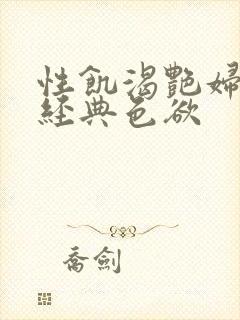 性飢渴艷婦
經典色欲
喬劍